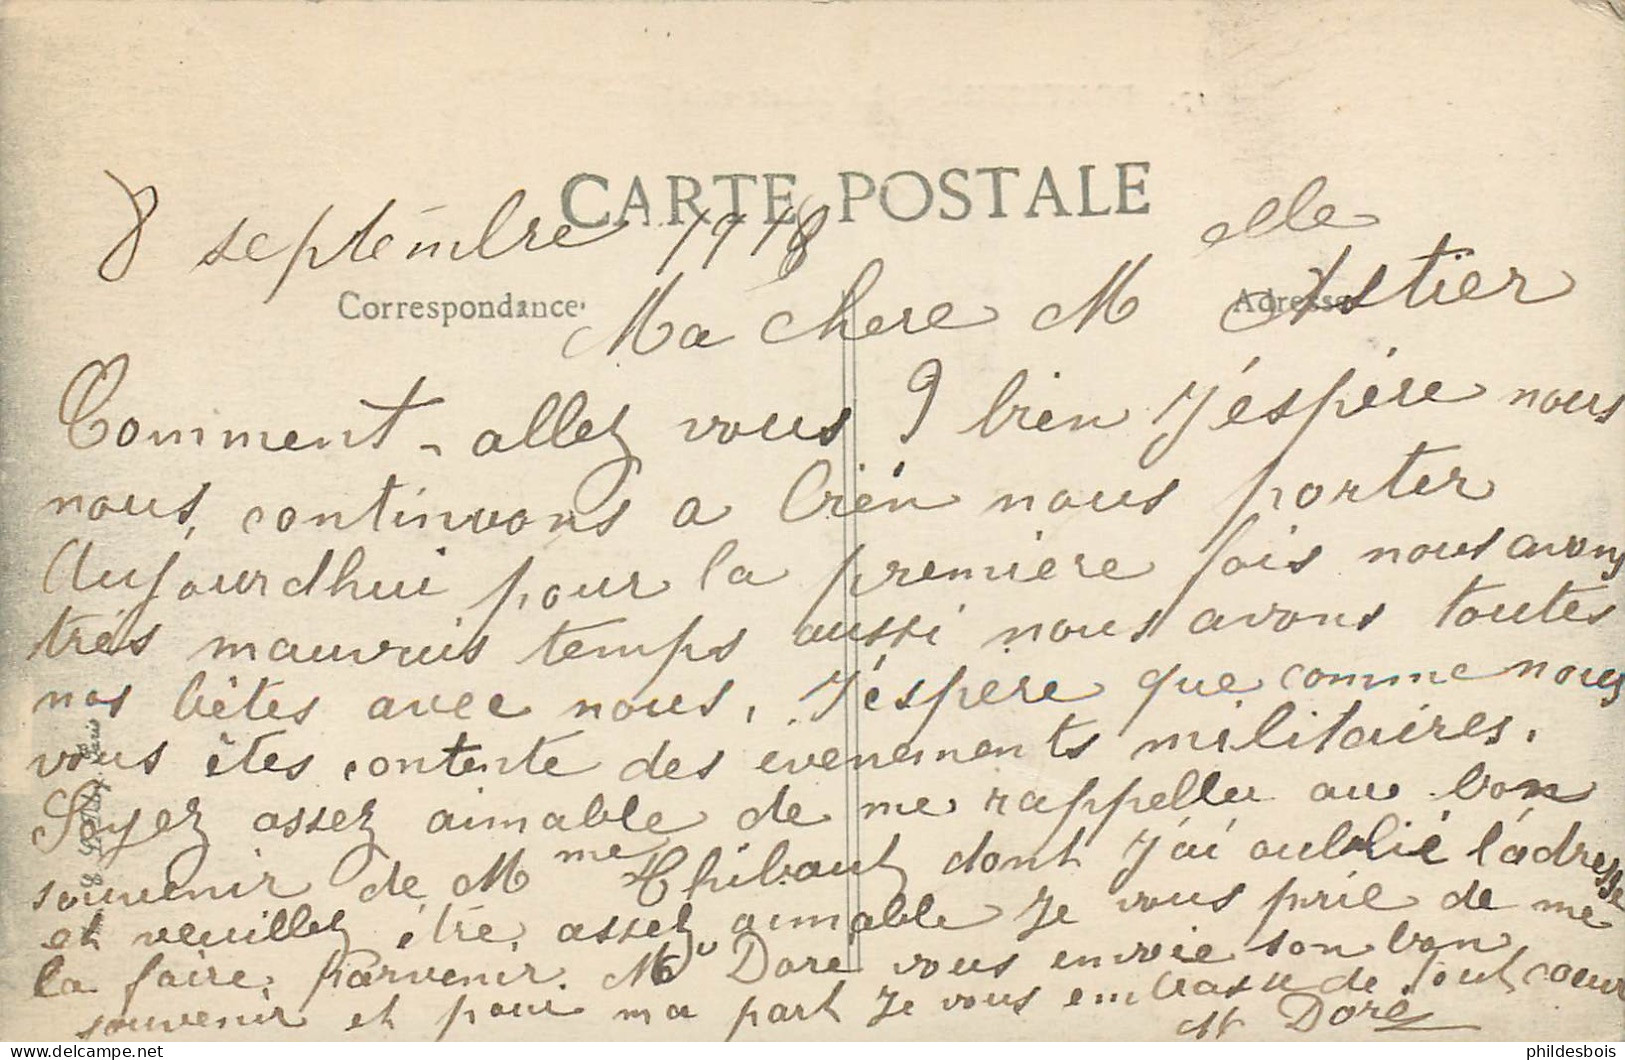 CARTE POSTALE
8 septembre 1918
Correspondance
Adresse
Ma chere Melle Astier
Comment - allez vous ? bien J'éspére nous
nous, continuons a bien nous porter
Aujourdhui pour la premiere fois nous avons
trés mauvais temps aussi nous avons toutes
nos bêtes avec nous. J'éspere que comme nous
vous êtes contente des evenements militaires.
Soyez assez aimable de me rappeller au bon
souvenir de Mme Thibaut dont J'ai oublié l'adresse
et veuillez être assez aimable Je vous prie de me
la faire parvenir. Mr Dore vous envoie son bon
souvenir et pour ma part Je vous embrasse de tout coeur
M Doré
phildesbois